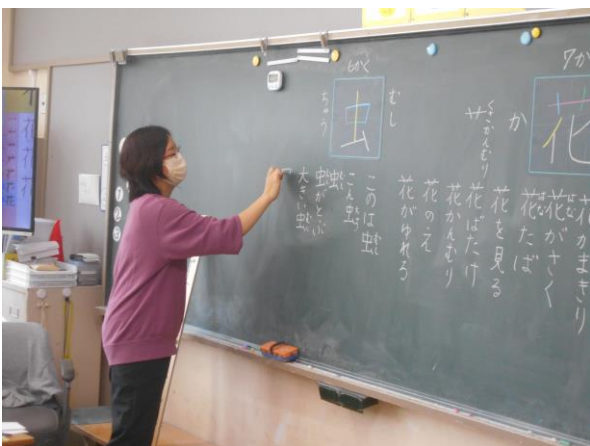 7か
花
か
くさかんむり
艹
花かまきり
花がさく
花たば
花を見る
花ばたけ
花かんむり
花のえ
花がゆれる
6かく
虫
むし
ちゅう
このは虫
こん虫
虫
虫がとぶ
大きい虫
一
花